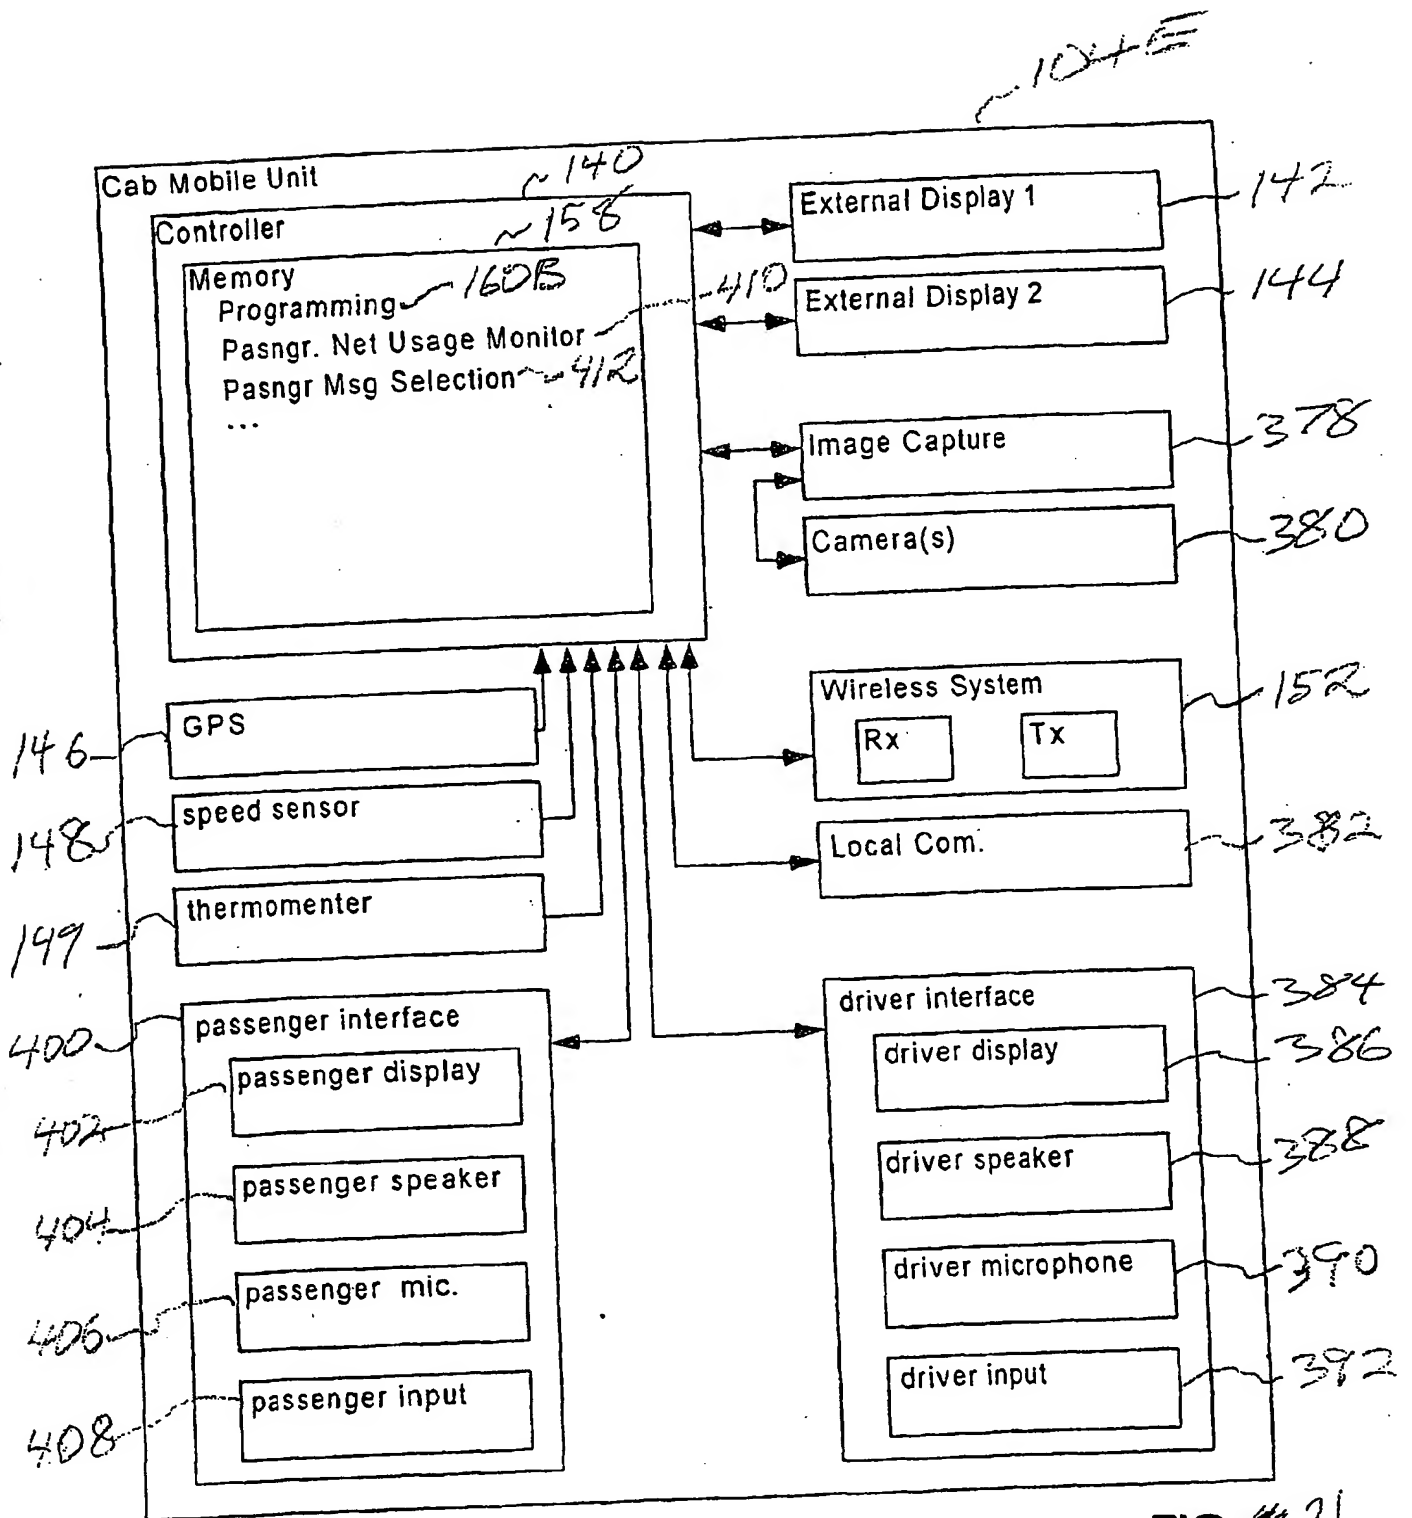 104E
Cab Mobile Unit
140
Controller
158
Memory
Programming 160B
Pasngr. Net Usage Monitor 410
Pasngr Msg Selection 412
...
External Display 1 142
External Display 2 144
Image Capture 378
Camera(s) 380
146 GPS
148 speed sensor
149 thermomenter
Wireless System 152
Rx Tx
Local Com. 382
400 passenger interface
402 passenger display
404 passenger speaker
406 passenger mic.
408 passenger input
driver interface 384
driver display 386
driver speaker 388
driver microphone 390
driver input 392
FIG. 21